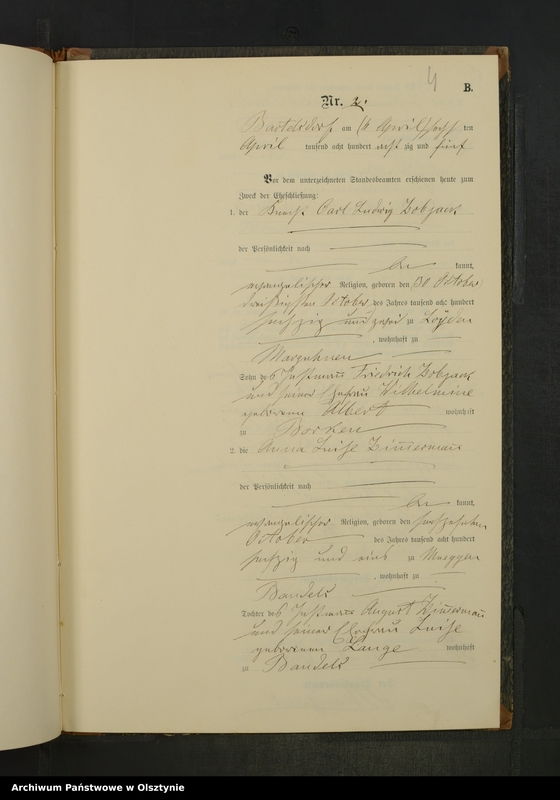 4
B.
Nr. 2.
Bartelsdorf am (6 April) sechs ten
April tausend acht hundert acht zig und fünf
Vor dem unterzeichneten Standesbeamten erschienen heute zum
Zweck der Eheschließung:
1. der Knecht Carl Ludwig Dobjack
der Persönlichkeit nach
be kannt,
evangelischer Religion, geboren den (30 October)
dreißigsten October des Jahres tausend acht hundert
sechzig und zwei zu
, wohnhaft zu
Sohn des Instmann Friedrich Dobjack
und seiner Ehefrau Wilhelmine
geborenen Albert wohnhaft
zu Borken
2. die Anna Luise Zimmermann
der Persönlichkeit nach
be kannt,
evangelischer Religion, geboren den
October des Jahres tausend acht hundert
sechzig und eins zu Mueggen
, wohnhaft zu
Bandels
Tochter des Instmann August Zimmermann
und seiner Ehefrau Luise
geborenen Lange wohnhaft
zu Bandels
Archiwum Państwowe w Olsztynie